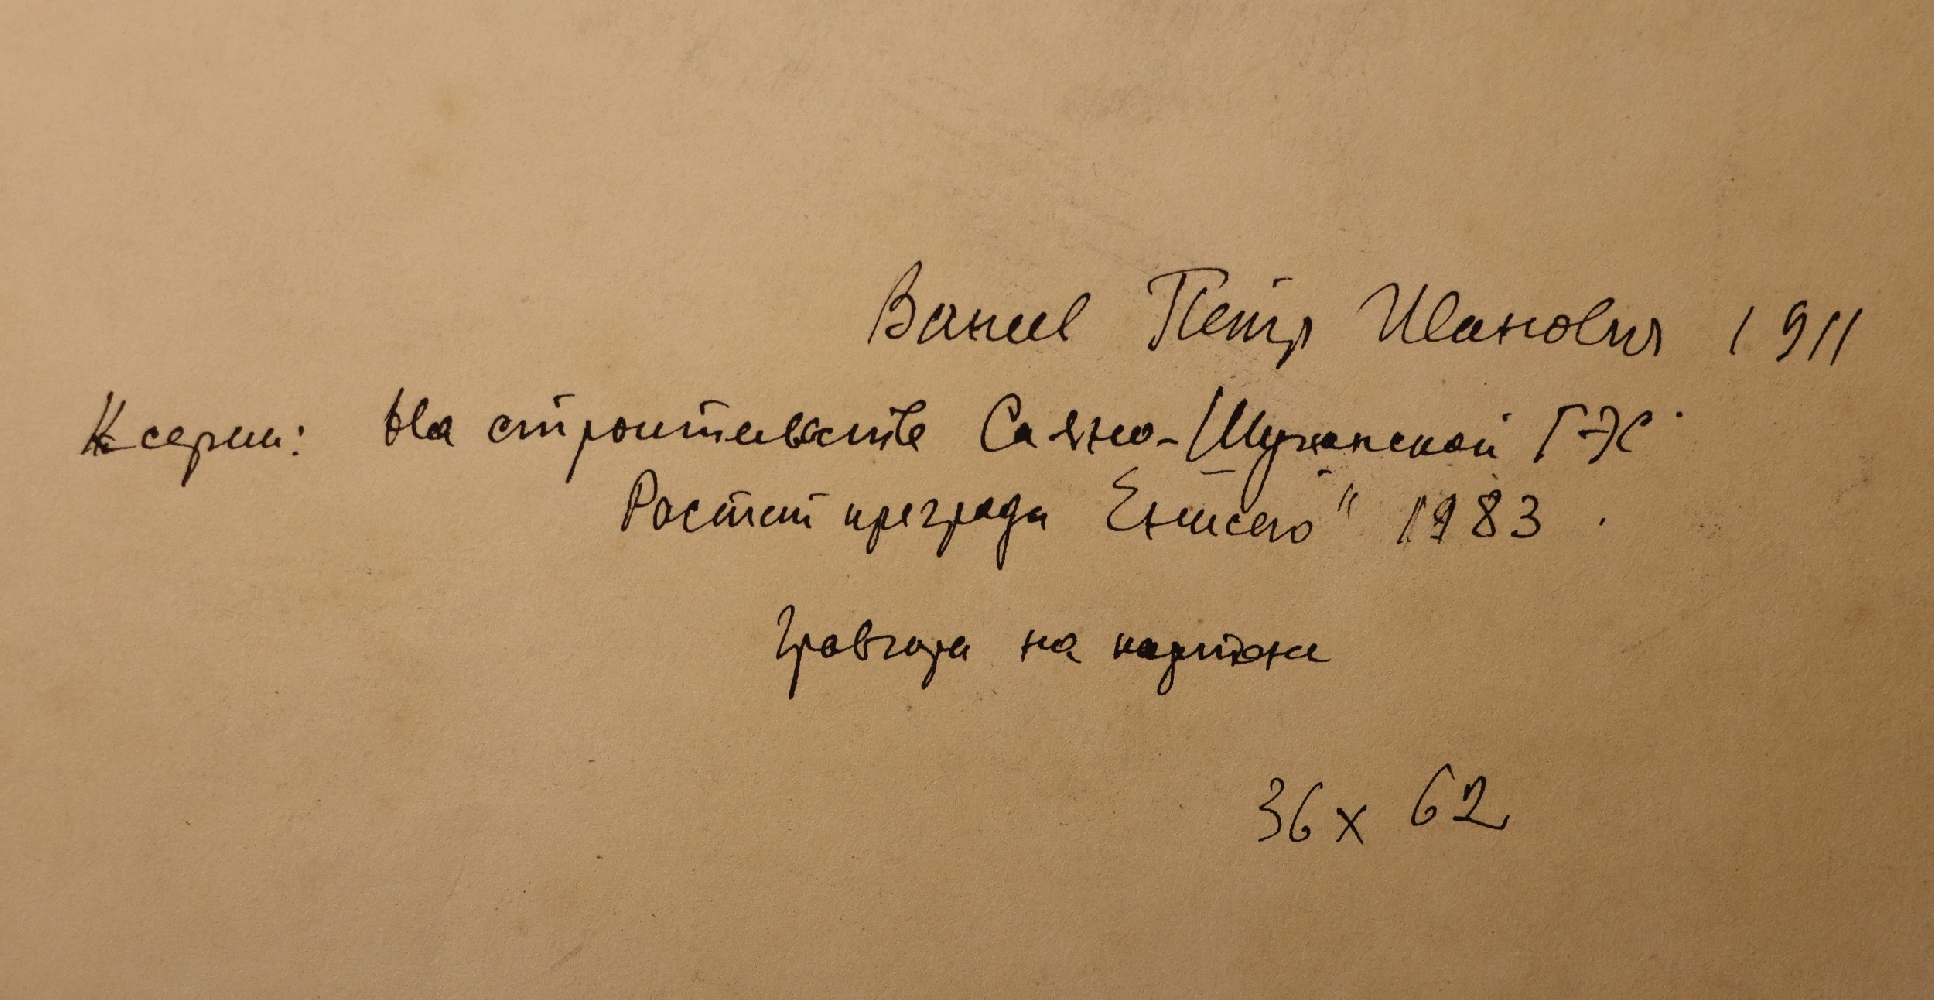 Ванеев Пётр Иванович 1911
К серии: На строительстве Саяно-Шушенской ГЭС
Растет преграда Енисею" 1983.
Гравюра на картоне
36 x 62